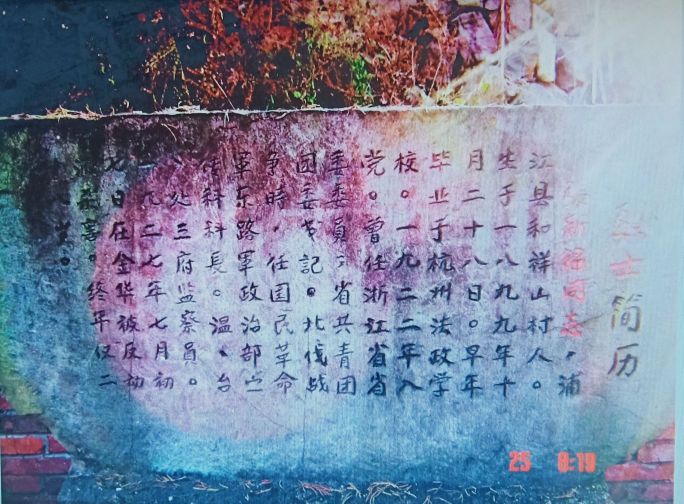 烈士简历
新同志，浦
江县和祥山村人。
生于一八九九年十
月二十八日。早年
毕业于杭州法政学
校。一九二二年入
党。曾任浙江省省
委委員，省共青团
团委书記。北伐战
争時，任国民革命
軍东路軍政治部宣
传科科長。温、台
、处三府监察員。
一九二七年七月初
七日在金华被反动
害。终年仅二
岁。
25 8:19